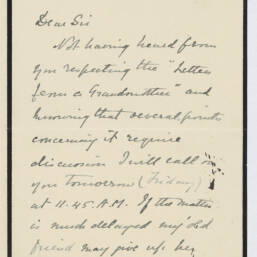 Dear Sir
Not having heard from
you respecting the "Letters
from a Grandmother" and
knowing that several points
concerning it require
discussion I will call on
you tomorrow (Friday)
at 11.45. A.M. If the matter
is much delayed my old
friend may give up her